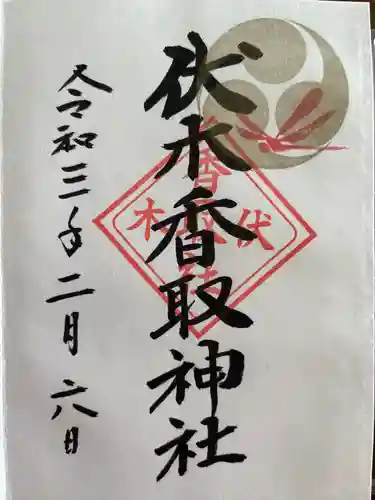 伏木香取神社
令和三年二月六日
伏木
香取